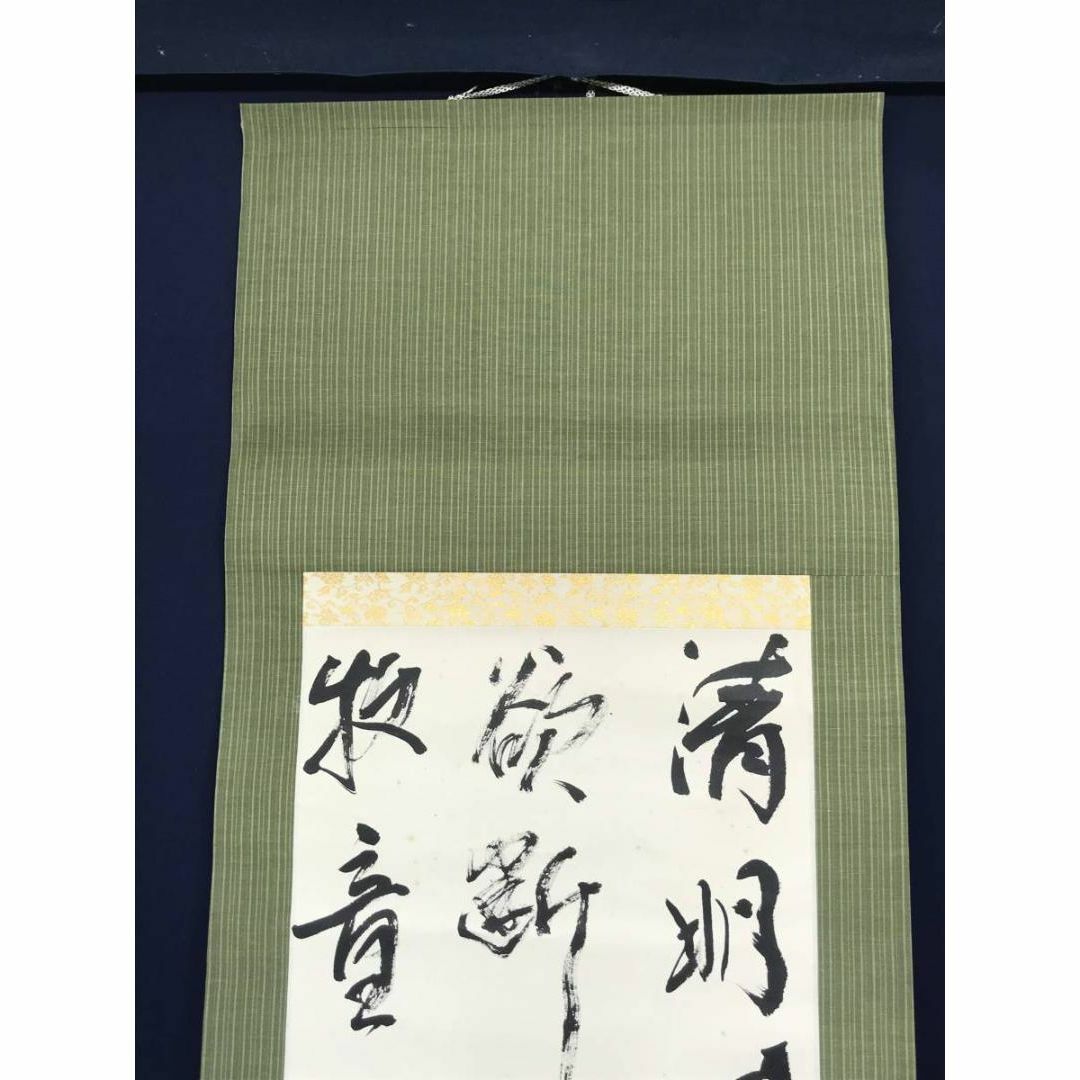 清明
欲断
牧童